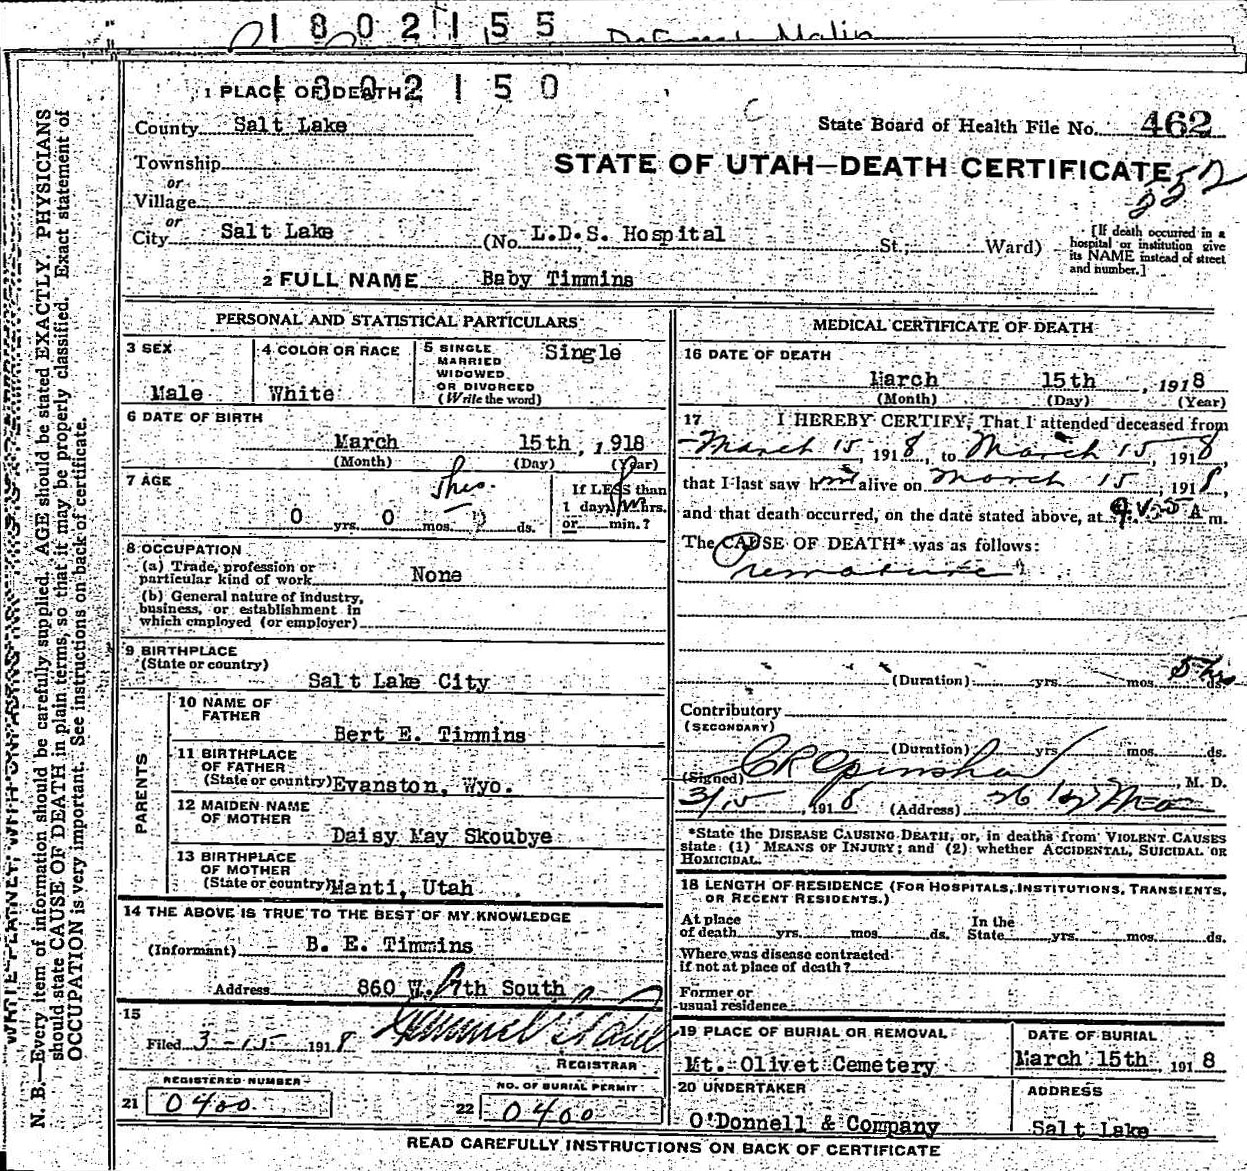 1802155
1802150
1 PLACE OF DEATH
County Salt Lake
State Board of Health File No. 462
Township
STATE OF UTAH—DEATH CERTIFICATE
or
Village
or
City Salt Lake (No. L.D.S. Hospital St.; Ward)
[If death occurred in a hospital or institution give its NAME instead of street and number.]
2 FULL NAME Baby Timmins
PERSONAL AND STATISTICAL PARTICULARS
3 SEX
Male
4 COLOR OR RACE
White
5 SINGLE
MARRIED
WIDOWED
OR DIVORCED
(Write the word)
Single
6 DATE OF BIRTH
March 15th, 1918
(Month) (Day) (Year)
7 AGE
5hrs.
0 yrs. 0 mos. ds.
If LESS than
1 day, hrs.
or min.?
8 OCCUPATION
(a) Trade, profession or
particular kind of work None
(b) General nature of industry,
business, or establishment in
which employed (or employer)
9 BIRTHPLACE
(State or country)
Salt Lake City
PARENTS
10 NAME OF
FATHER
Bert E. Timmins
11 BIRTHPLACE
OF FATHER
(State or country) Evanston, Wyo.
12 MAIDEN NAME
OF MOTHER
Daisy May Skoubye
13 BIRTHPLACE
OF MOTHER
(State or country) Manti, Utah
14 THE ABOVE IS TRUE TO THE BEST OF MY KNOWLEDGE
(Informant) B. E. Timmins
Address 860 W. 7th South
15
Filed 3-15- 1918
REGISTRAR
REGISTERED NUMBER
21 0400
NO. OF BURIAL PERMIT
22 0400
MEDICAL CERTIFICATE OF DEATH
16 DATE OF DEATH
March 15th, 1918
(Month) (Day) (Year)
17 I HEREBY CERTIFY, That I attended deceased from
March 15, 1918, to March 15, 1918,
that I last saw him alive on March 15, 1918,
and that death occurred, on the date stated above, at A m.
The CAUSE OF DEATH* was as follows:
Premature
(Duration) yrs. mos. 5 hrs ds.
Contributory
(SECONDARY)
(Duration) yrs. mos. ds.
(Signed) M. D.
3/15, 1918 (Address)
*State the DISEASE CAUSING DEATH, or, in deaths from VIOLENT CAUSES
state: (1) MEANS OF INJURY; and (2) whether ACCIDENTAL, SUICIDAL OR
HOMICIDAL.
18 LENGTH OF RESIDENCE (FOR HOSPITALS, INSTITUTIONS, TRANSIENTS,
OR RECENT RESIDENTS.)
At place
of death yrs. mos. ds.
In the
State yrs. mos. ds.
Where was disease contracted
if not at place of death?
Former or
usual residence
19 PLACE OF BURIAL OR REMOVAL
Mt. Olivet Cemetery
DATE OF BURIAL
March 15th, 1918
20 UNDERTAKER
O'Donnell & Company
ADDRESS
Salt Lake
READ CAREFULLY INSTRUCTIONS ON BACK OF CERTIFICATE
N. B.—Every item of information should be carefully supplied. AGE should be stated EXACTLY. PHYSICIANS
should state CAUSE OF DEATH in plain terms, so that it may be properly classified. Exact statement of
OCCUPATION is very important. See instructions on back of certificate.